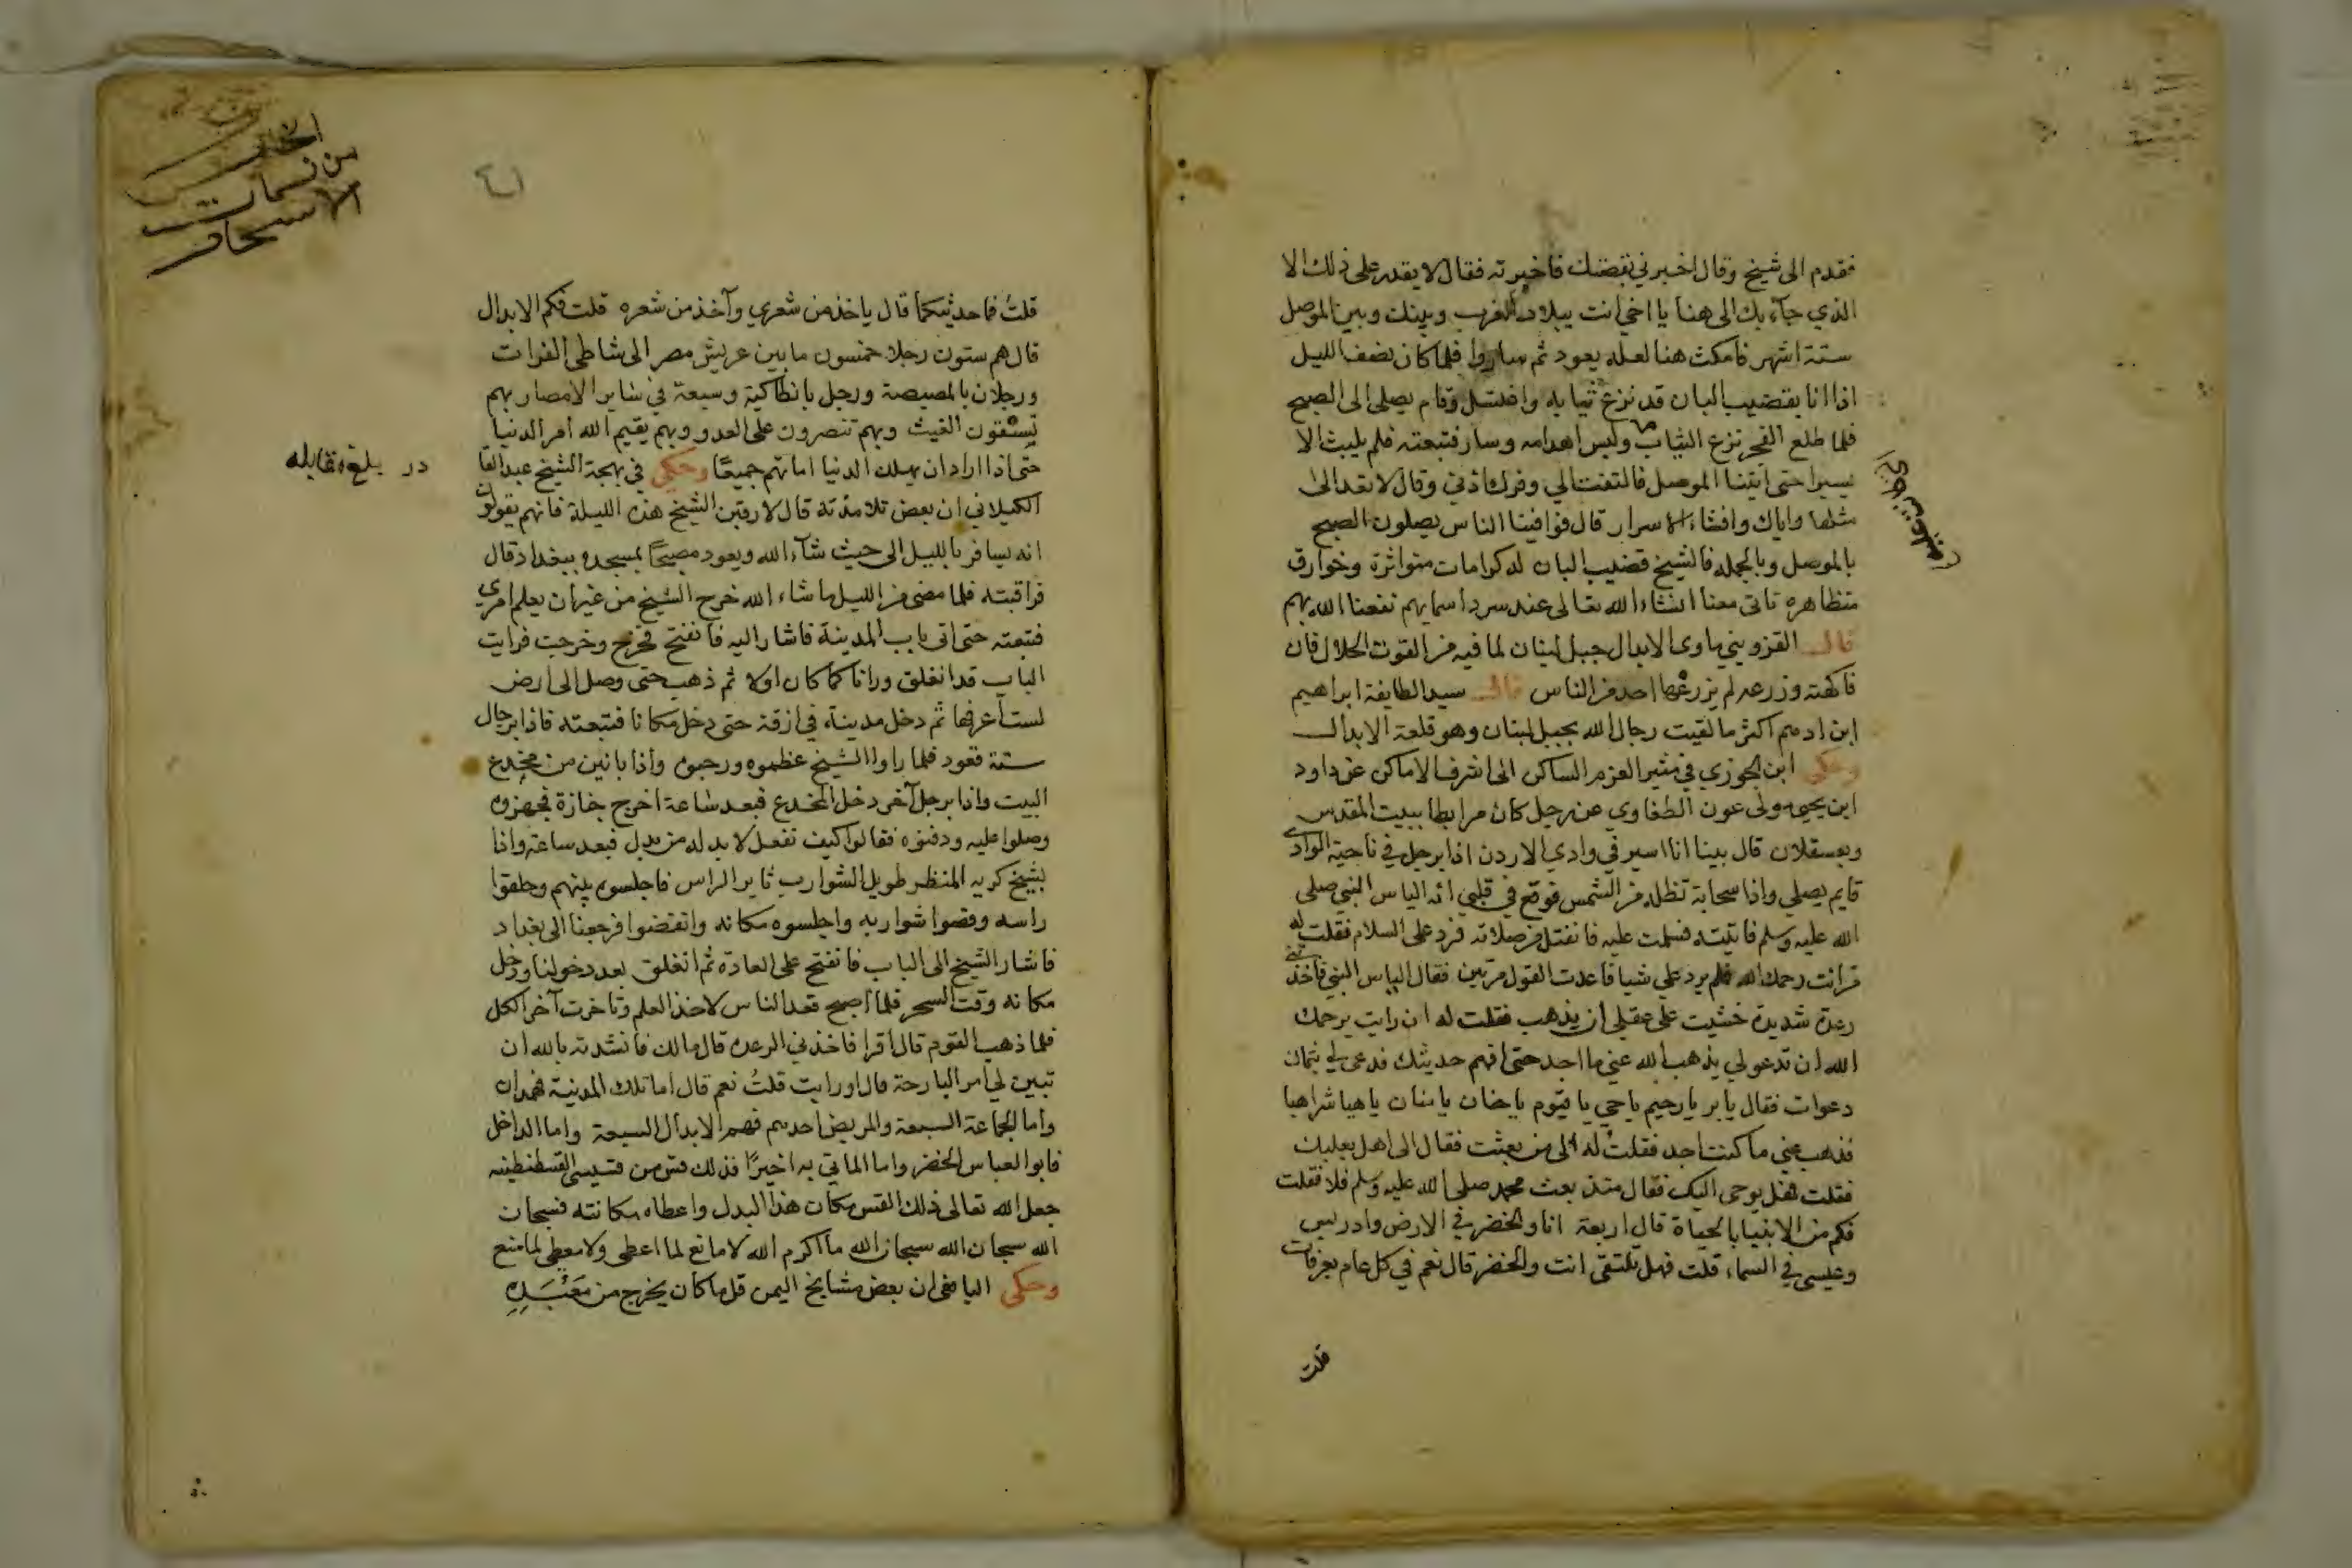 فقدم الى شيخ وقال اخبرني بقصتك فاخبرته فقال لا يقدر على ذلك الا
الذي جآء بك الى هنا يا اخي انت ببلاد المغرب وبينك وبين الموصل
ستة اشهر فامكث هنا لعله يعود ثم ساروا فلما كان نصف الليل
اذا انا بقضيب البان قد نزع ثيابه واغتسل وقام يصلي الى الصبح
فلما طلع الفجر نزع الثياب ولبس اهدامه وسار فتبعته فلم يلبث الا
يسيرا حتى اتينا الموصل فالتفت الي وفرك اذني وقال لا تعد الى
مثلها واياك وافشاء الاسرار قال فوافينا الناس يصلون الصبح
بالموصل وبالجملة فالشيخ قضيب البان له كرامات متواترة وخوارق
متظاهره تاتى معنا انشاء الله تعالى عند سرد اسمايهم نفعنا الله بهم
قال القزويني ماوى الابدال جبل لبنان لما فيه من القوت الحلال فان
فاكهته وزرعه لم يزرعها احد من الناس قال سيد الطايفة ابراهيم
ابن ادهم اكثر ما لقيت رجال الله بجبل لبنان وهو قلعة الابدال
وحكى ابن الجوزي في مثير العزم الساكن الى اشرف الاماكن عن داود
ابن يحيى مولى عون الطفاوي عن رجل كان مرابطا ببيت المقدس
وبعسقلان قال بينا انا اسير في وادي الاردن اذا برجل في ناحية الوادي
قايم يصلي واذا سحابة تظله من الشمس فوقع في قلبي انه الياس النبي صلى
الله عليه وسلم فاتيته فسلمت عليه فانفتل من صلاته فرد على السلام فقلت له
من انت رحمك الله فلم يرد علي شيا فاعدت القول مرتين فقال الياس النبي فاخذتني
رعدة شديدة خشيت على عقلي ان يذهب فقلت له ان رايت يرحمك
الله ان تدعو لي يذهب الله عني ما اجد حتى افهم حديثك فدعى لي بثمان
دعوات فقال يا بر يا رحيم يا حي يا قيوم يا حنان يا منان يا هيا شراهيا
فذهب عني ما كنت اجد فقلت له الى من بعثت فقال الى اهل بعلبك
فقلت فهل يوحى اليك فقال منذ بعث محمد صلى الله عليه وسلم فلا فقلت
فكم من الانبيا بالحياة قال اربعة انا والخضر في الارض وادريس
وعيسى في السماء قلت فهل تلتقى انت والخضر قال نعم في كل عام بعرفات
قلت
من نسمات
الاسحار
قلتُ فما حديثكما قال ياخذ من شعري وآخذ من شعره قلت فكم الابدال
قال هم ستون رجلا خمسون ما بين عريش مصر الى شاطى الفرات
ورجلان بالمصيصة ورجل بانطاكية وسبعة في ساير الامصار بهم
تسقون الغيث وبهم تنصرون على العدو وبهم يقيم الله أمر الدنيا
حتى اذا اراد ان يهلك الدنيا اماتهم جميعًا وحكي في بهجة الشيخ عبد القا
بلغ مقابله
الكيلاني ان بعض تلامذته قال لارقبن الشيخ هذه الليلة فانهم يقولون
انه يسافر بالليل الى حيث شآء الله ويعود مصبحًا بمسجده ببغداد قال
فراقبته فلما مضى من الليل ما شاء الله خرج الشيخ من غير ان يعلم امري
فتبعته حتى اتى باب المدينة فاشار اليه فانفتح فخرج وخرجت فرايت
الباب قد انغلق ورانا كما كان اولا ثم ذهب حتى وصل الى ارض
لست أعرفها ثم دخل مدينة في ازقة حتى دخل مكانا فتبعته فاذا برجال
ستة قعود فلما راوا الشيخ عظموه ورحبوه وأذا بانين من مخدع
البيت واذا برجل آخر دخل المخدع فبعد ساعة اخرج جنازة فجهزوه
وصلوا عليه ودفنوه فقالوا كيف نفعل لا بد له من بدل فبعد ساعة واذا
بشيخ كريه المنظر طويل الشوارب ثاير الراس فاجلسوه بينهم وحلقوا
راسه وقصوا شواربه واجلسوه مكانه وانفضوا فرجعنا الى بغداد
فاشار الشيخ الى الباب فانفتح على العادة ثم انغلق بعد دخولنا ودخل
مكانه وقت السحر فلما اصبح قعد الناس لاخذ العلم وتاخرت آخر الكل
فلما ذهب القوم قال اقرا فاخذني الرعده قال مالك فانشدته بالله ان
تبين لي امر البارحة قال اورايت قلتُ نعم قال اما تلك المدينة فهمدان
واما الجماعة السبعة والمريض احدهم فهم الابدال السبعة واما الداخل
فابو العباس الخضر واما الماتي به اخيرًا فذلك قس من قسيسى القسطنطينيه
جعل الله تعالى ذلك القس مكان هذا البدل واعطاه مكانته فسبحان
الله سبحان الله سبحان الله ما اكرم الله لا مانع لما اعطى ولا معطي لما منع
وحكى اليافعى ان بعض مشايخ اليمن قل ما كان يخرج من مَعْبَدِهِ